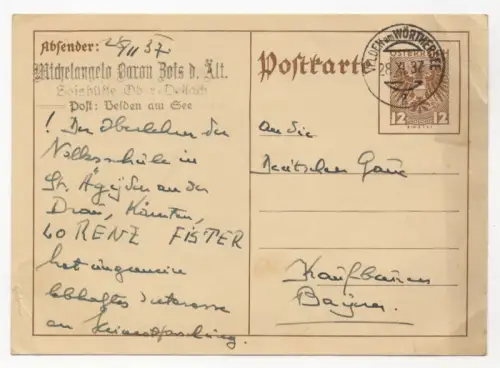 Absender: 28/11 37
Michelangelo Baron Zois d. Ält.
Post: Velden am See
! Der Oberlehrer der
Volksschule in
St. Ägyden an der
Drau, Kärnten,
LORENZ FISTER
hat ungemein
lebhaftes Interesse
an Heimatforschung.
Postkarte
VELDEN am WÖRTHERSEE
28.XI.37
ÖSTERREICH
12 12
An die
Deutschen Gaue
Kaufbeuren
Bayern.